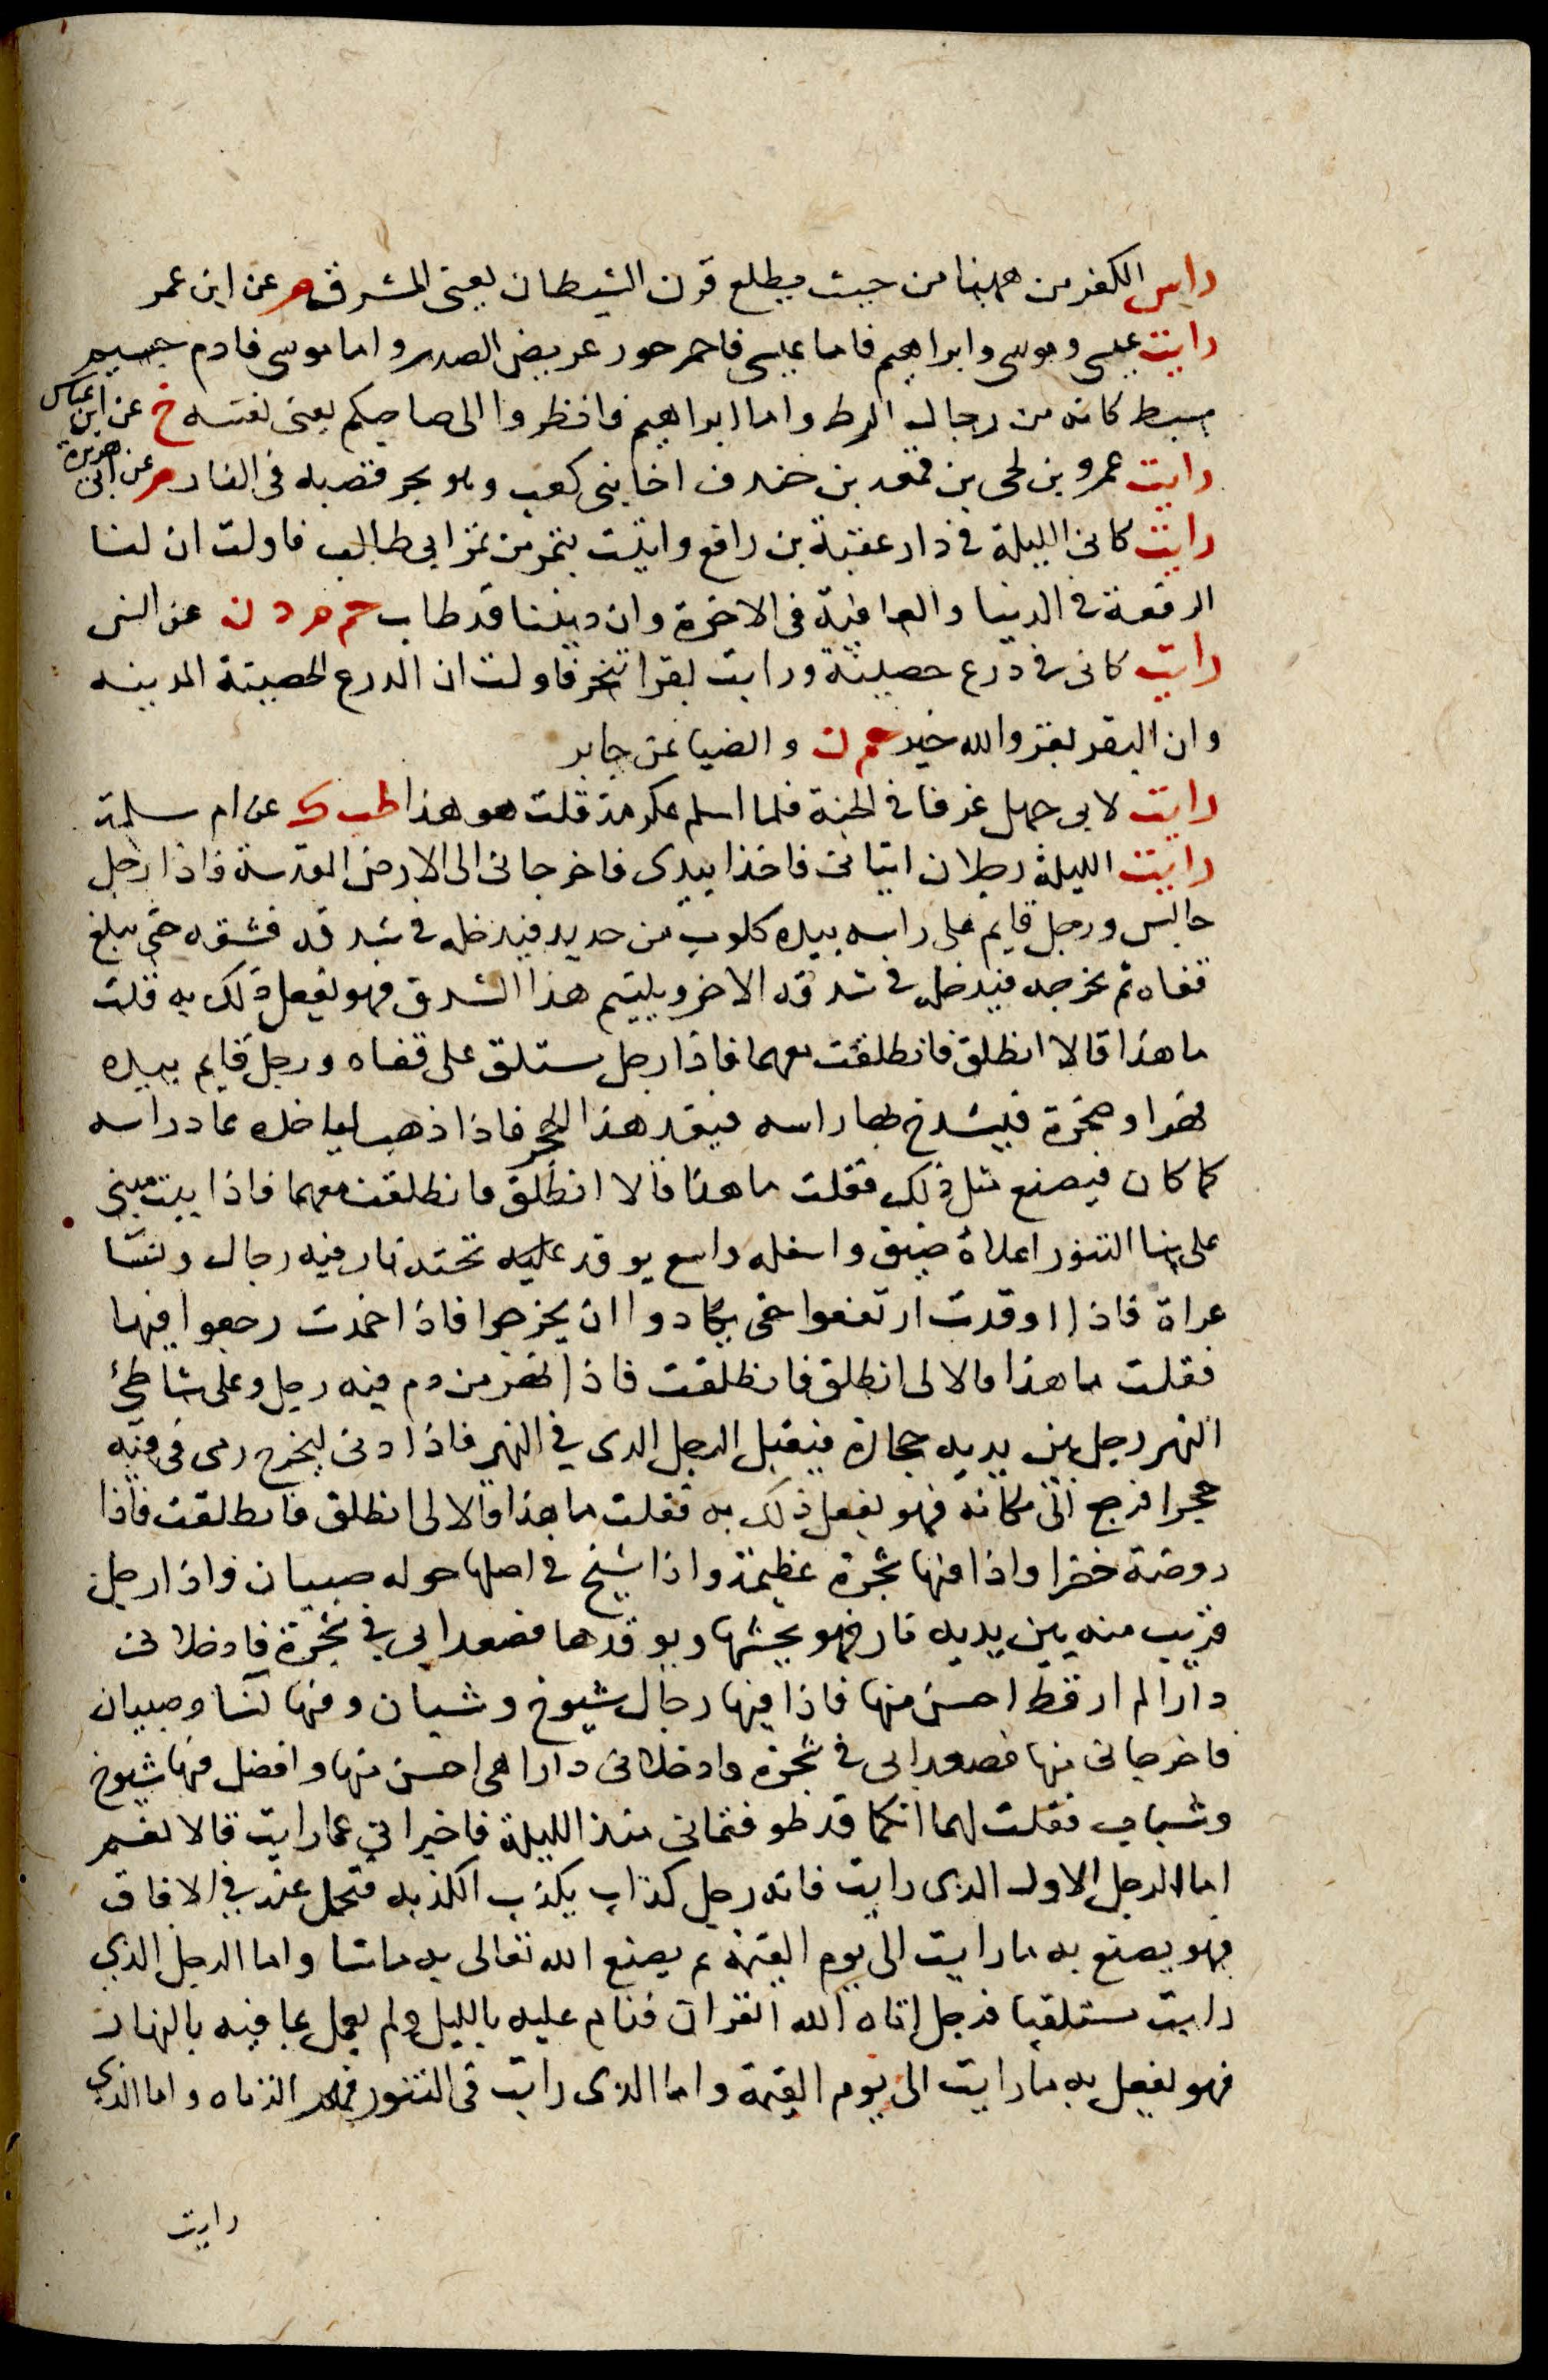 راس الكفر من ههنا من حيث يطلع قرن الشيطان يعني المشرق م عن ابن عمر
رايت عيسى وموسى وابراهيم فاما عيسى فاحمر جعد عريض الصدر واما موسى فادم جسيم
سبط كانه من رجال الزط واما ابراهيم فانظروا الى صاحبكم يعني نفسه خ عن ابن عباس
رايت عمرو بن لحي بن قمعة بن خندف اخا بني كعب وهو يجر قصبه في النار م عن ابي هريرة
رايت كاني الليلة في دار عقبة بن رافع واتيت بتمر من تمر ابي طالب فاولت ان لنا
الرفعة في الدنيا والعاقبة في الاخرة وان ديننا قد طاب حم م د ن عن انس
رايت كاني في درع حصينة ورايت بقرا تنحر فاولت ان الدرع الحصينة المدينه
وان البقر بقر والله خير حم ن والضيا عن جابر
رايت لابي جهل عذقا في الجنة فلما اسلم عكرمة قلت هو هذا طب ك عن ام سلمة
رايت الليلة رجلان اتياني فاخذا بيدي فاخرجاني الى الارض المقدسة فاذا رجل
جالس ورجل قايم على راسه بيده كلوب من حديد فيدخله في شدقه فشقه حتى يبلغ
قفاه ثم يخرجه فيدخله في شدقه الاخر ويلتيم هذا الشدق فهو يفعل ذلك به قلت
ما هذا قالا انطلق فانطلقت معهما فاذا رجل مستلق على قفاه ورجل قايم بيده
فهر او صخرة فيشدخ بها راسه فيتدهدا الحجر فاذا ذهب لياخذه عاد راسه
كما كان فيصنع مثل ذلك فقلت ما هذا قالا انطلق فانطلقت معهما فاذا بيت مبني
على بنا التنور اعلاه ضيق واسفله واسع يوقد عليه تحته نار فيه رجال ونسا
عراة فاذا اوقدت ارتفعوا حتى يكادوا ان يخرجوا فاذا اخمدت رجعوا فيها
فقلت ما هذا قالا لى انطلق فانطلقت فاذا نهر من دم فيه رجل وعلى شاطئ
النهر رجل بين يديه حجارة فيقبل الرجل الذي في النهر فاذا دنى ليخرج رمى في فيه
حجرا فرجع الى مكانه فهو يفعل ذلك به فقلت ما هذا قالا لى انطلق فانطلقت فاذا
روضة خضرا واذا فيها شجرة عظيمة واذا شيخ في اصلها حوله صبيان واذا رجل
قريب منه بين يديه نار فهو يحشها ويوقدها فصعدا بي في شجرة فادخلاني
دارا لم ار قط احسن منها فاذا فيها رجال شيوخ وشبان وفيها نسا وصبيان
فاخرجاني منها فصعدا بي في شجرة فادخلاني دارا هي احسن منها وافضل فيها شيوخ
وشباب فقلت لهما انكما قد طوفتماني منذ الليلة فاخبراني عما رايت قالا نعم
اما الرجل الاول الذي رايت فانه رجل كذاب يكذب الكذبه فتحمل عنه في الافاق
فهو يصنع به ما رايت الى يوم القيمة ثم يصنع الله تعالى به ما شا واما الرجل الذي
رايت مستلقيا فرجل اتاه الله القران فنام عليه بالليل ولم يعمل بما فيه بالنهار
فهو يفعل به ما رايت الى يوم القيمة واما الذي رايت في التنور فهم الزناه واما الذي
رايت